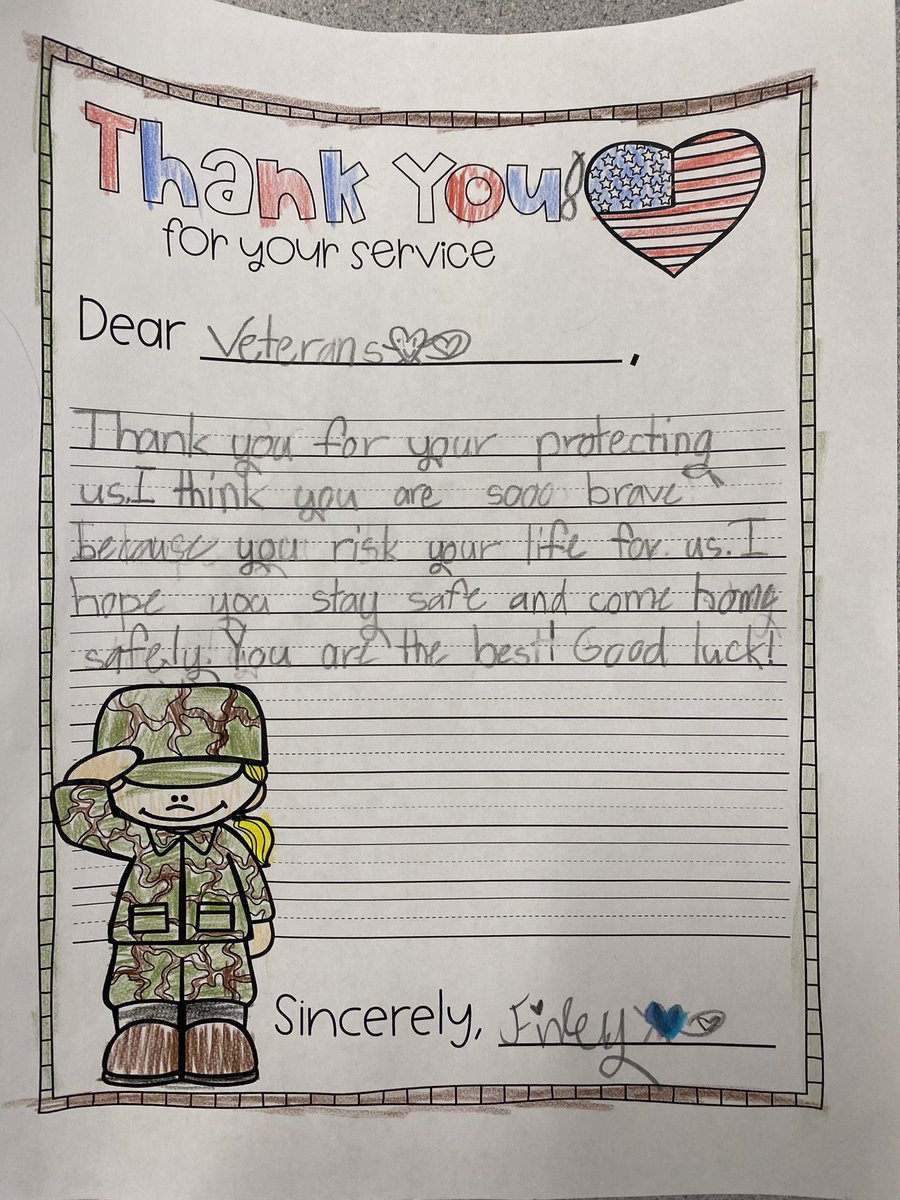 Thank You
for your service
Dear Veterans,
Thank you for your protecting
us. I think you are sooo brave
because you risk your life for us. I
hope you stay safe and come home
safely. You are the best! Good luck!
Sincerely, Finley